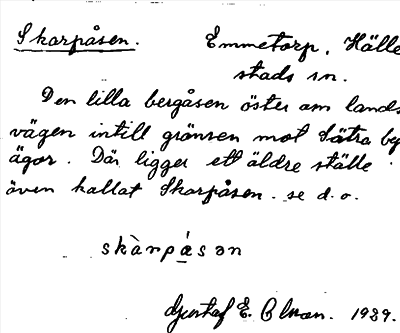 Skarpåsen. Emmetorp, Hälle
stads sn.
Den lilla bergåsen öster om lands
vägen intill gränsen mot Sätra by
ägor. Där ligger ett äldre ställe
även kallat Skarpåsen. se d.o.
skàrpåsən
Gustaf E. Olman. 1929.